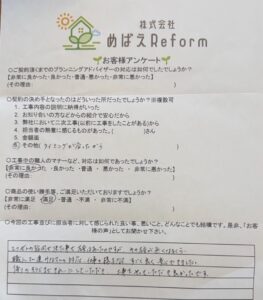 株式会社
めばえReform
お客様アンケート
○ご契約頂くまでのプランニングアドバイザーの対応は如何でしたでしょうか?
【非常に良かった・良かった・普通・悪かった・非常に悪かった】
(その理由： )
○契約の決め手となったのはどういった所だったでしょうか?※複数可
1. 工事内容の説明に納得がいった
2. お知り合いの方などからの紹介で安心だから
3. 弊社において二次工事(以前に工事をしたことがある)から
4. 担当者の熱意に感じるものがあった。( )さん
5. 金額面
⑥ その他( タイミングが合ったから )
○工事中の職人のマナーなど、対応は如何だったでしょうか?
【非常に良かった・良かった・普通・悪かった・非常に悪かった】
(その理由： )
○商品の使い勝手等、ご満足いただいておりますでしょうか?
【非常に満足・満足・普通・不満・非常に不満】
(その理由： )
○今回の工事並びに担当者に対して感じられた良い事、悪いこと、どんなことでも結構です。是非、「お客様の声」としてお聞かせ下さい。